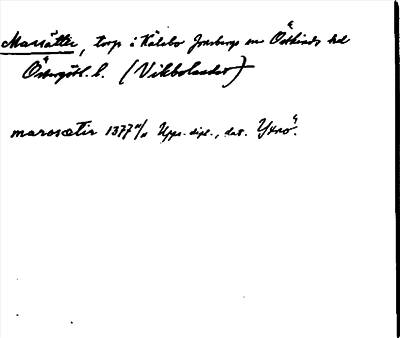 Marsätter, torp i Kälebo Jonsbergs sn Östkinds hd
Östergötl. l. (Vikbolandet)
marosætir 1377 Upps. dipl., dat. Yxnö.